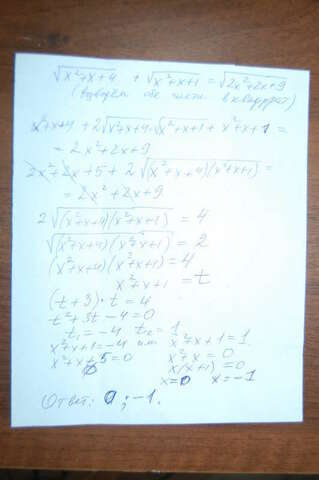 √x²+x+4 + √x²+x+1 = √2x²+2x+9
(возведём обе части в квадрат)
x²+x+4 + 2√x²+x+4·√x²+x+1 + x²+x+1 =
= 2x²+2x+9
2x²+2x+5 + 2√(x²+x+4)(x²+x+1) =
= 2x²+2x+9
2√(x²+x+4)(x²+x+1) = 4
√(x²+x+4)(x²+x+1) = 2
(x²+x+4)(x²+x+1) = 4
x²+x+1 = t
(t+3)·t = 4
t²+3t-4=0
t₁=-4 t₂=1
x²+x+1=-4 или x²+x+1=1
x²+x+5=0 x²+x=0
∅ x(x+1)=0
x=0 x=-1
Ответ: 0; -1.